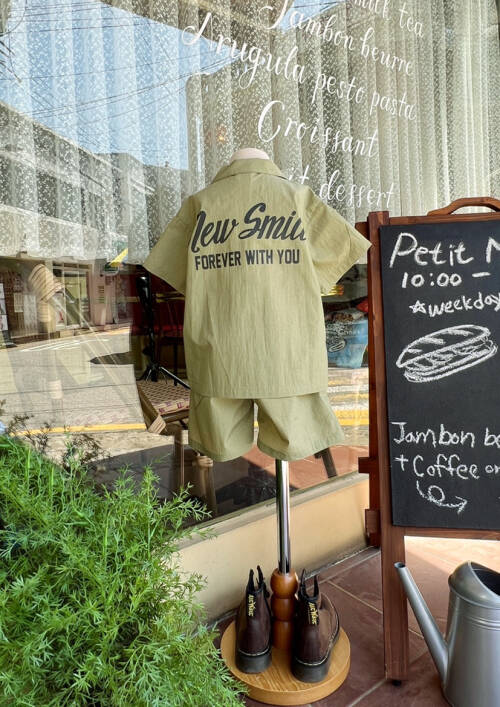 milk tea
Jambon beurre
Arugula pesto pasta
Croissant
dessert
New Smile
FOREVER WITH YOU
Petit M
10:00 -
☆weekday
Jambon be
+ Coffee or